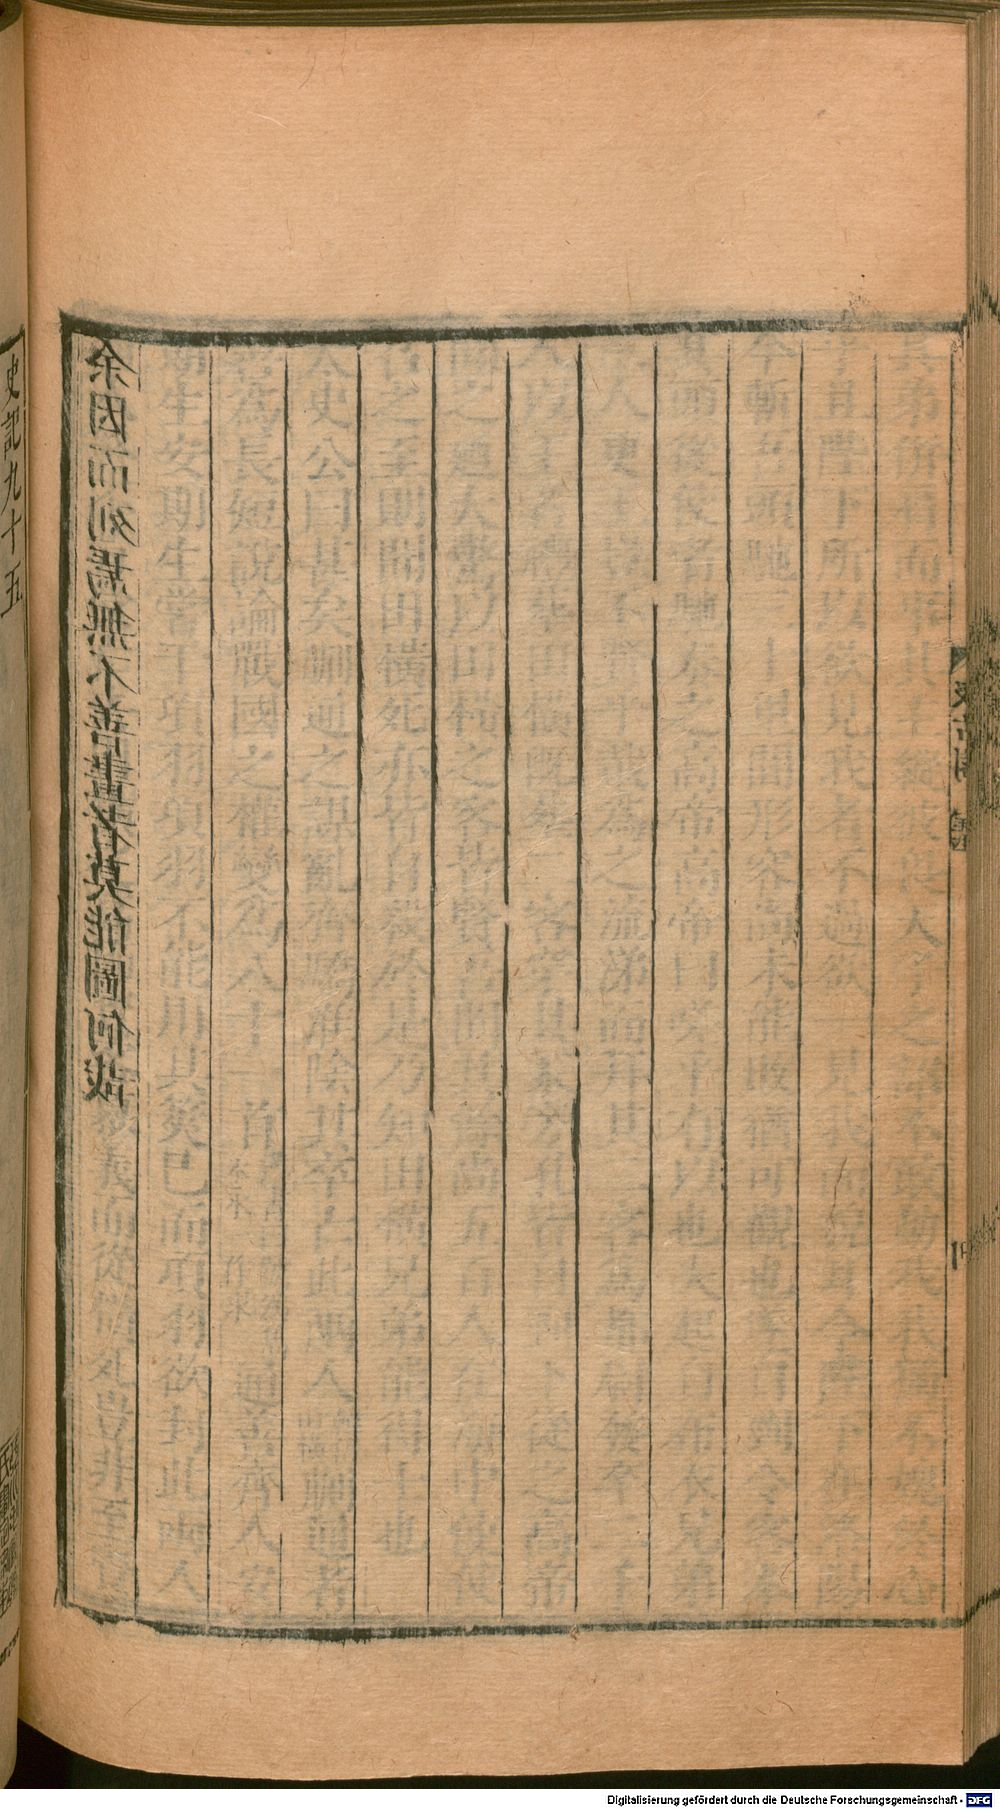 其弟併肩而事其主縱彼畏天子之詔不敢動我我獨不愧於心
乎且陛下所以欲見我者不過欲一見我面貌耳今陛下在洛陽
今斬吾頭馳三十里間形容尚未能敗猶可觀也遂自剄令客奉
其頭從使者馳奏之高帝高帝曰嗟乎有以也夫起自布衣兄弟
三人更王豈不賢乎哉為之流涕而拜其二客為都尉發卒二千
人以王者禮葬田橫既葬二客穿其冢旁孔皆自剄下從之高帝
聞之迺大驚以田橫之客皆賢吾聞其餘尚五百人在海中使使
召之至則聞田橫死亦皆自殺於是乃知田橫兄弟能得士也
太史公曰甚矣蒯通之謀亂齊驕淮陰其卒亡此兩人蒯通者
善為長短說論戰國之權變為八十一首通善齊人安
期生安期生嘗干項羽項羽不能用其筴已而項羽欲封此兩人
義而從橫死豈非至賢
余因而列焉無不善畫者莫能圖何哉
史記九十五
汲古閣
Digitalisierung gefördert durch die Deutsche Forschungsgemeinschaft - DFG